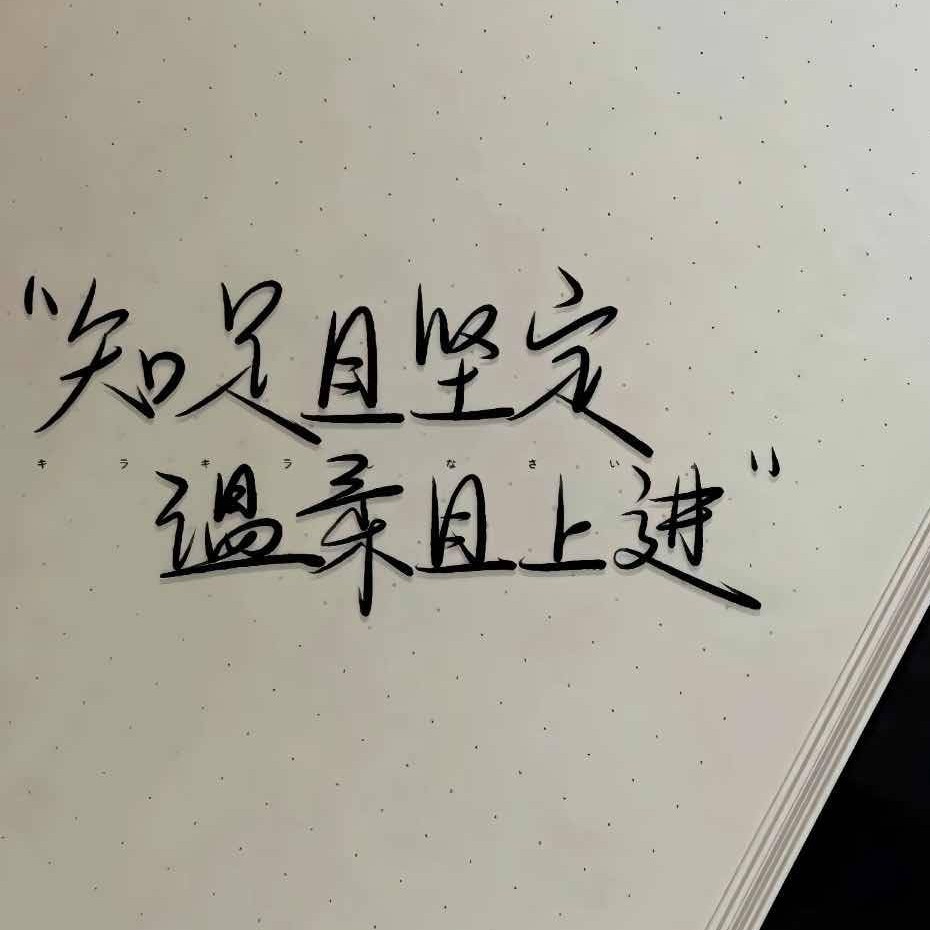 “知足且坚定
キラキラしなさい
温柔且上进”